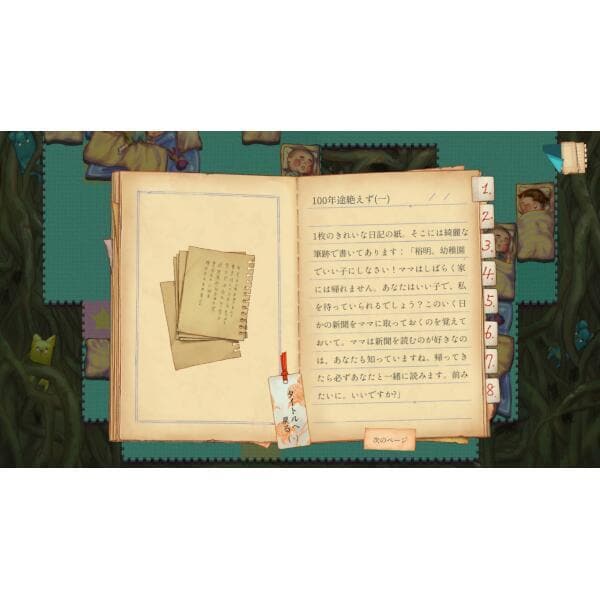 100年途絶えず(一)
1枚のきれいな日記の紙。そこには綺麗な
筆跡で書いてあります：「裕明、幼稚園
でいい子にしなさい！ママはしばらく家
には帰れません。あなたはいい子で、私
を待っていられるでしょう？このいく日
かの新聞をママに取っておくのを覚えて
おいて。ママは新聞を読むのが好きなの
は、あなたも知っていますね。帰ってき
たら必ずあなたと一緒に読みます。前み
たいに。いいですか?」
1.
2.
3.
4.
5.
6.
7.
8.
タイトルへ
戻る
次のページ